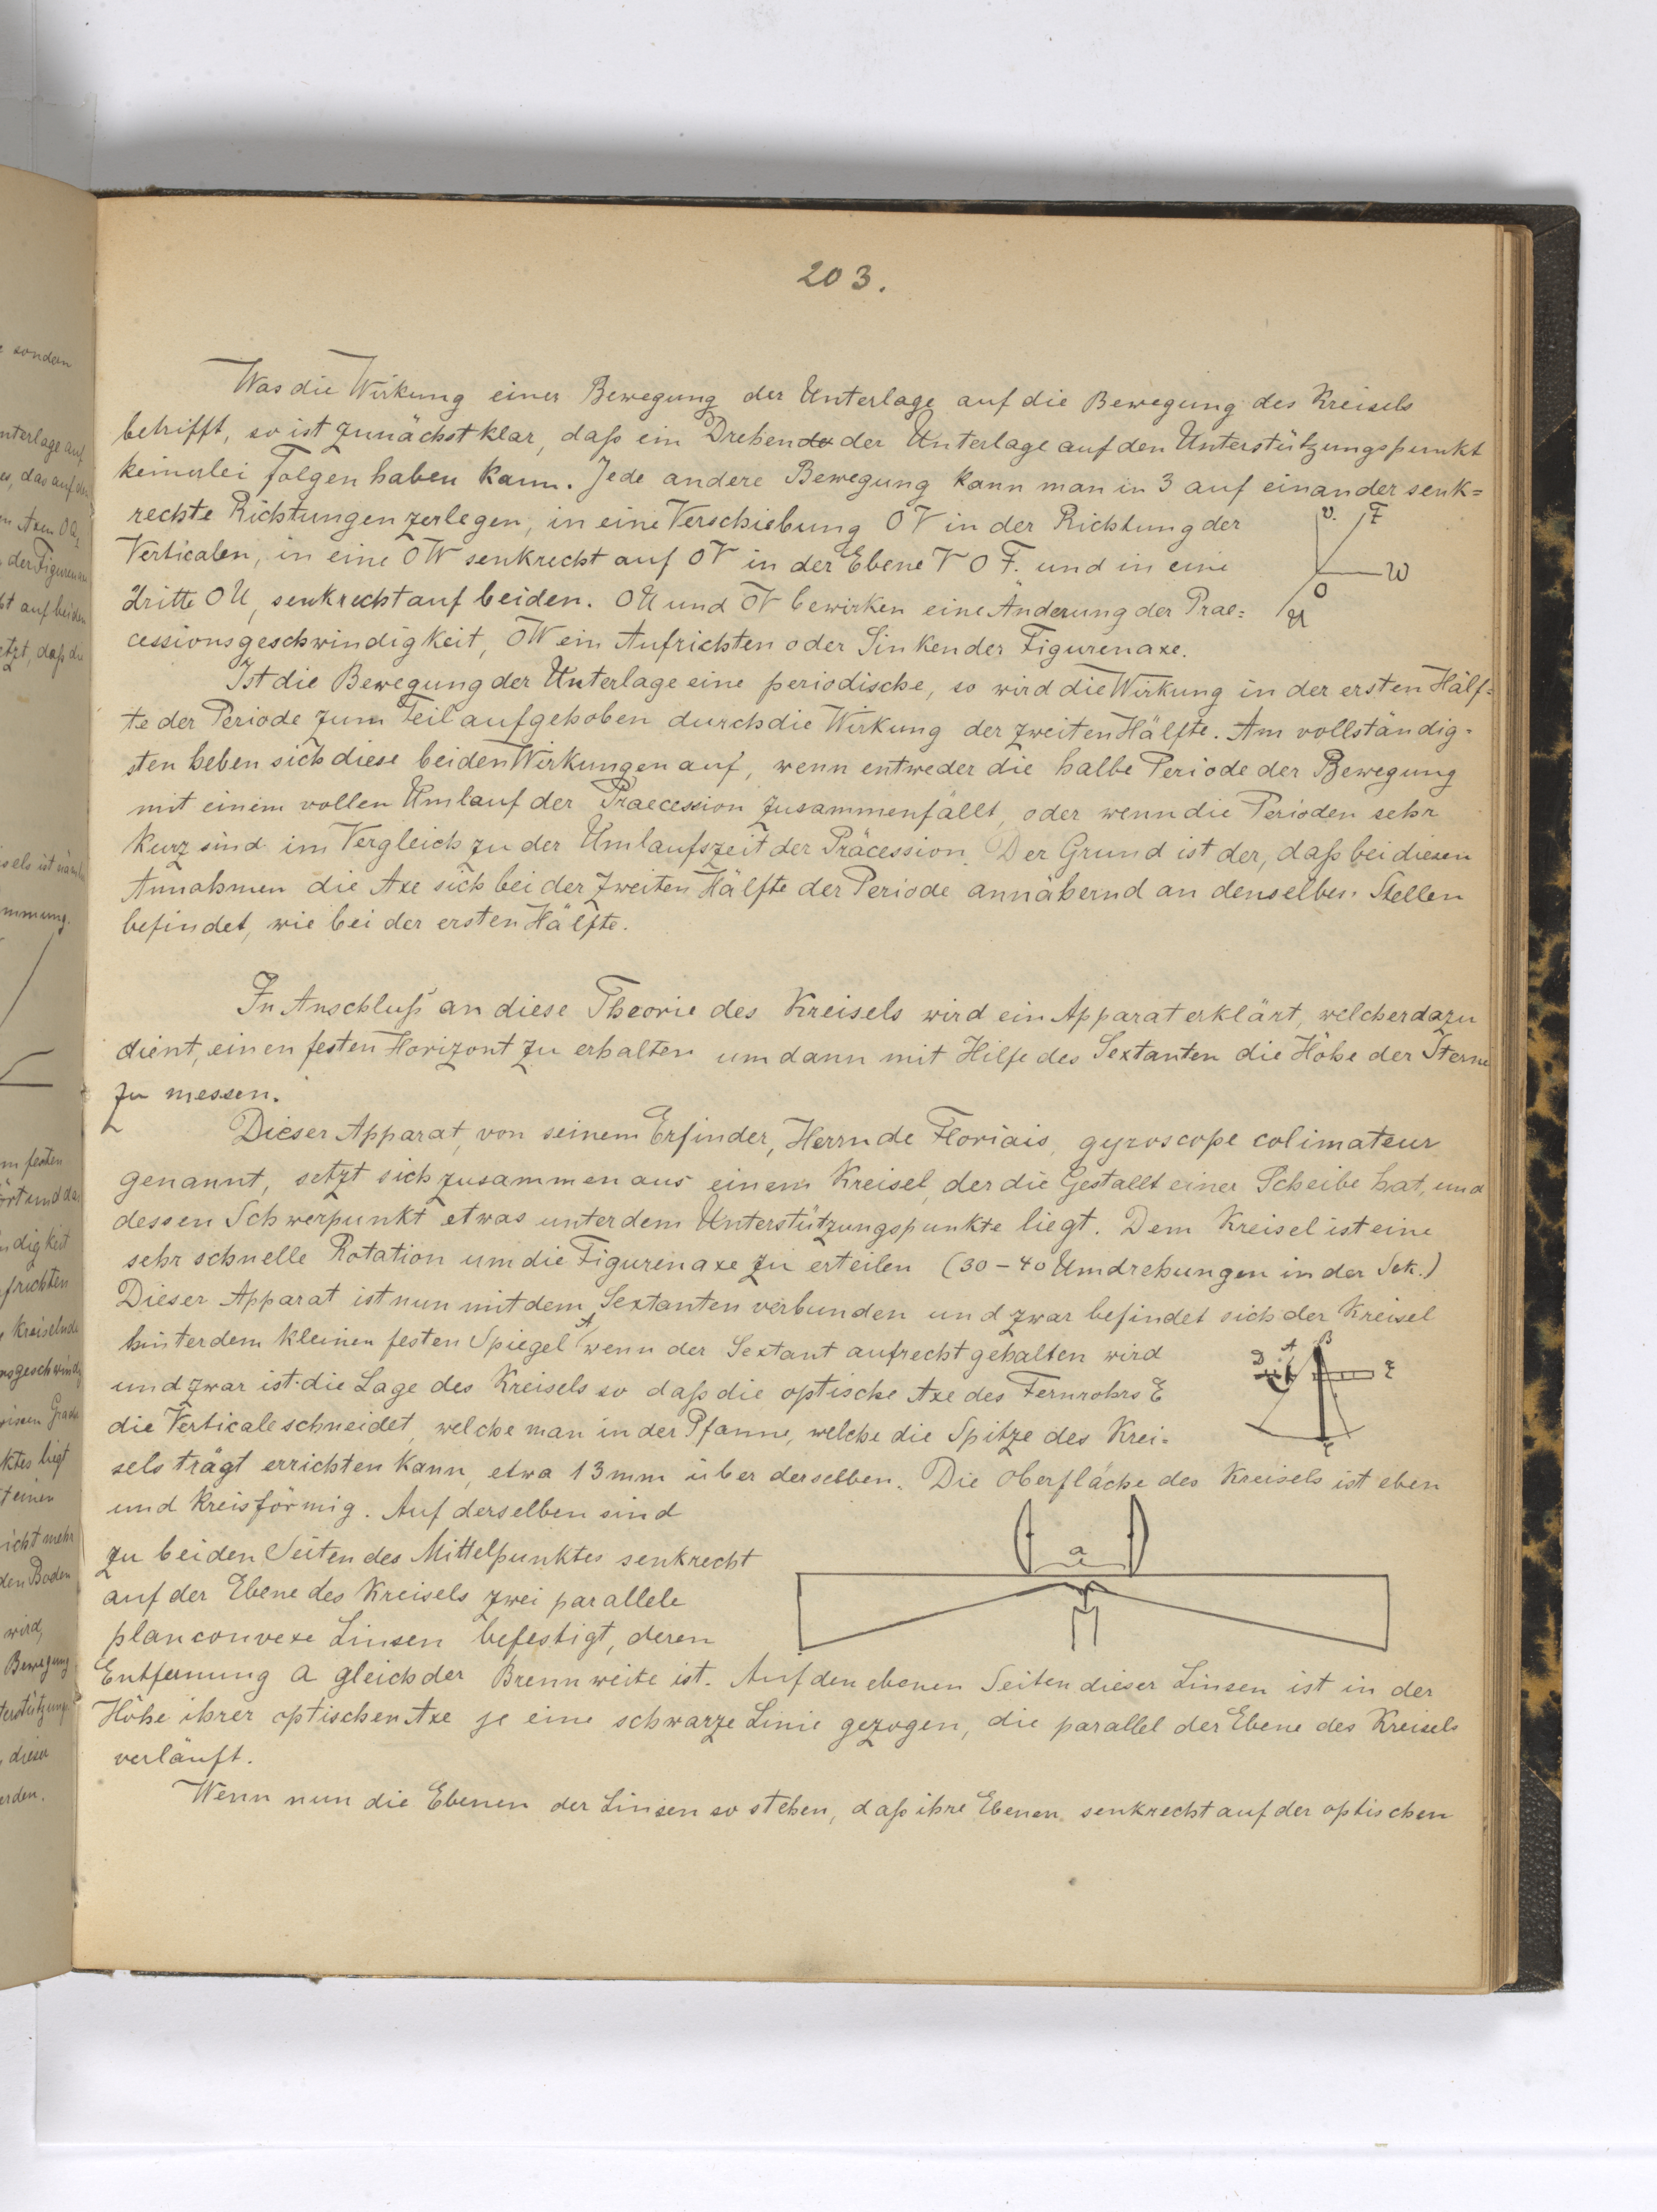 203.
Was die Wirkung einer Bewegung der Unterlage auf die Bewegung des Kreisels
betrifft, so ist zunächst klar, daß ein Drehen de der Unterlage auf den Unterstützungspunkt
keinerlei Folgen haben kann. Jede andere Bewegung kann man in 3 auf einander senk=
rechte Richtungen zerlegen, in eine Verschiebung OV in der Richtung der
Verticalen, in eine OW senkrecht auf OV in der Ebene V O F. und in eine
dritte OU, senkrecht auf beiden. OU und OV bewirken eine Änderung der Prae=
cessionsgeschwindigkeit, OW ein Aufrichten oder Sinken der Figurenaxe.
v. F
W
O
U
Ist die Bewegung der Unterlage eine periodische, so wird die Wirkung in der ersten Hälf=
te der Periode zum Teil aufgehoben durch die Wirkung der zweiten Hälfte. Am vollständig=
sten heben sich diese beiden Wirkungen auf, wenn entweder die halbe Periode der Bewegung
mit einem vollen Umlauf der Praecession zusammenfällt, oder wenn die Perioden sehr
kurz sind im Vergleich zu der Umlaufszeit der Präcession. Der Grund ist der, daß bei diesen
Annahmen die Axe sich bei der zweiten Hälfte der Periode annähernd an denselben Stellen
befindet, wie bei der ersten Hälfte.
In Anschluß an diese Theorie des Kreisels wird ein Apparat erklärt, welcher dazu
dient, einen festen Horizont zu erhalten um dann mit Hilfe des Sextanten die Höhe der Sterne
zu messen.
Dieser Apparat, von seinem Erfinder, Herrn de Floriais, gyroscope colimateur
genannt, setzt sich zusammen aus einem Kreisel, der die Gestallt einer Scheibe hat, und
dessen Schwerpunkt etwas unter dem Unterstützungspunkte liegt. Dem Kreisel ist eine
sehr schnelle Rotation um die Figurenaxe zu erteilen (30 - 40 Umdrehungen in der Sek.)
Dieser Apparat ist nun mit dem Sextanten verbunden und zwar befindet sich der Kreisel
hinter dem kleinen festen Spiegel A, wenn der Sextant aufrecht gehalten wird
und zwar ist die Lage des Kreisels so daß die optische Axe des Fernrohrs E
die Verticale schneidet, welche man in der Pfanne, welche die Spitze des Krei=
sels trägt errichten kann, etwa 13 mm über derselben. Die Oberfläche des Kreisels ist eben
D A B E
und kreisförmig. Auf derselben sind
zu beiden Seiten des Mittelpunktes senkrecht
auf der Ebene des Kreisels zwei parallele
planconvexe Linsen befestigt, deren
a
Entfernung a gleich der Brennweite ist. Auf den ebenen Seiten dieser Linsen ist in der
Höhe ihrer optischen Axe je eine schwarze Linie gezogen, die parallel der Ebene des Kreisels
verläuft.
Wenn nun die Ebenen der Linsen so stehen, daß ihre Ebenen senkrecht auf der optischen